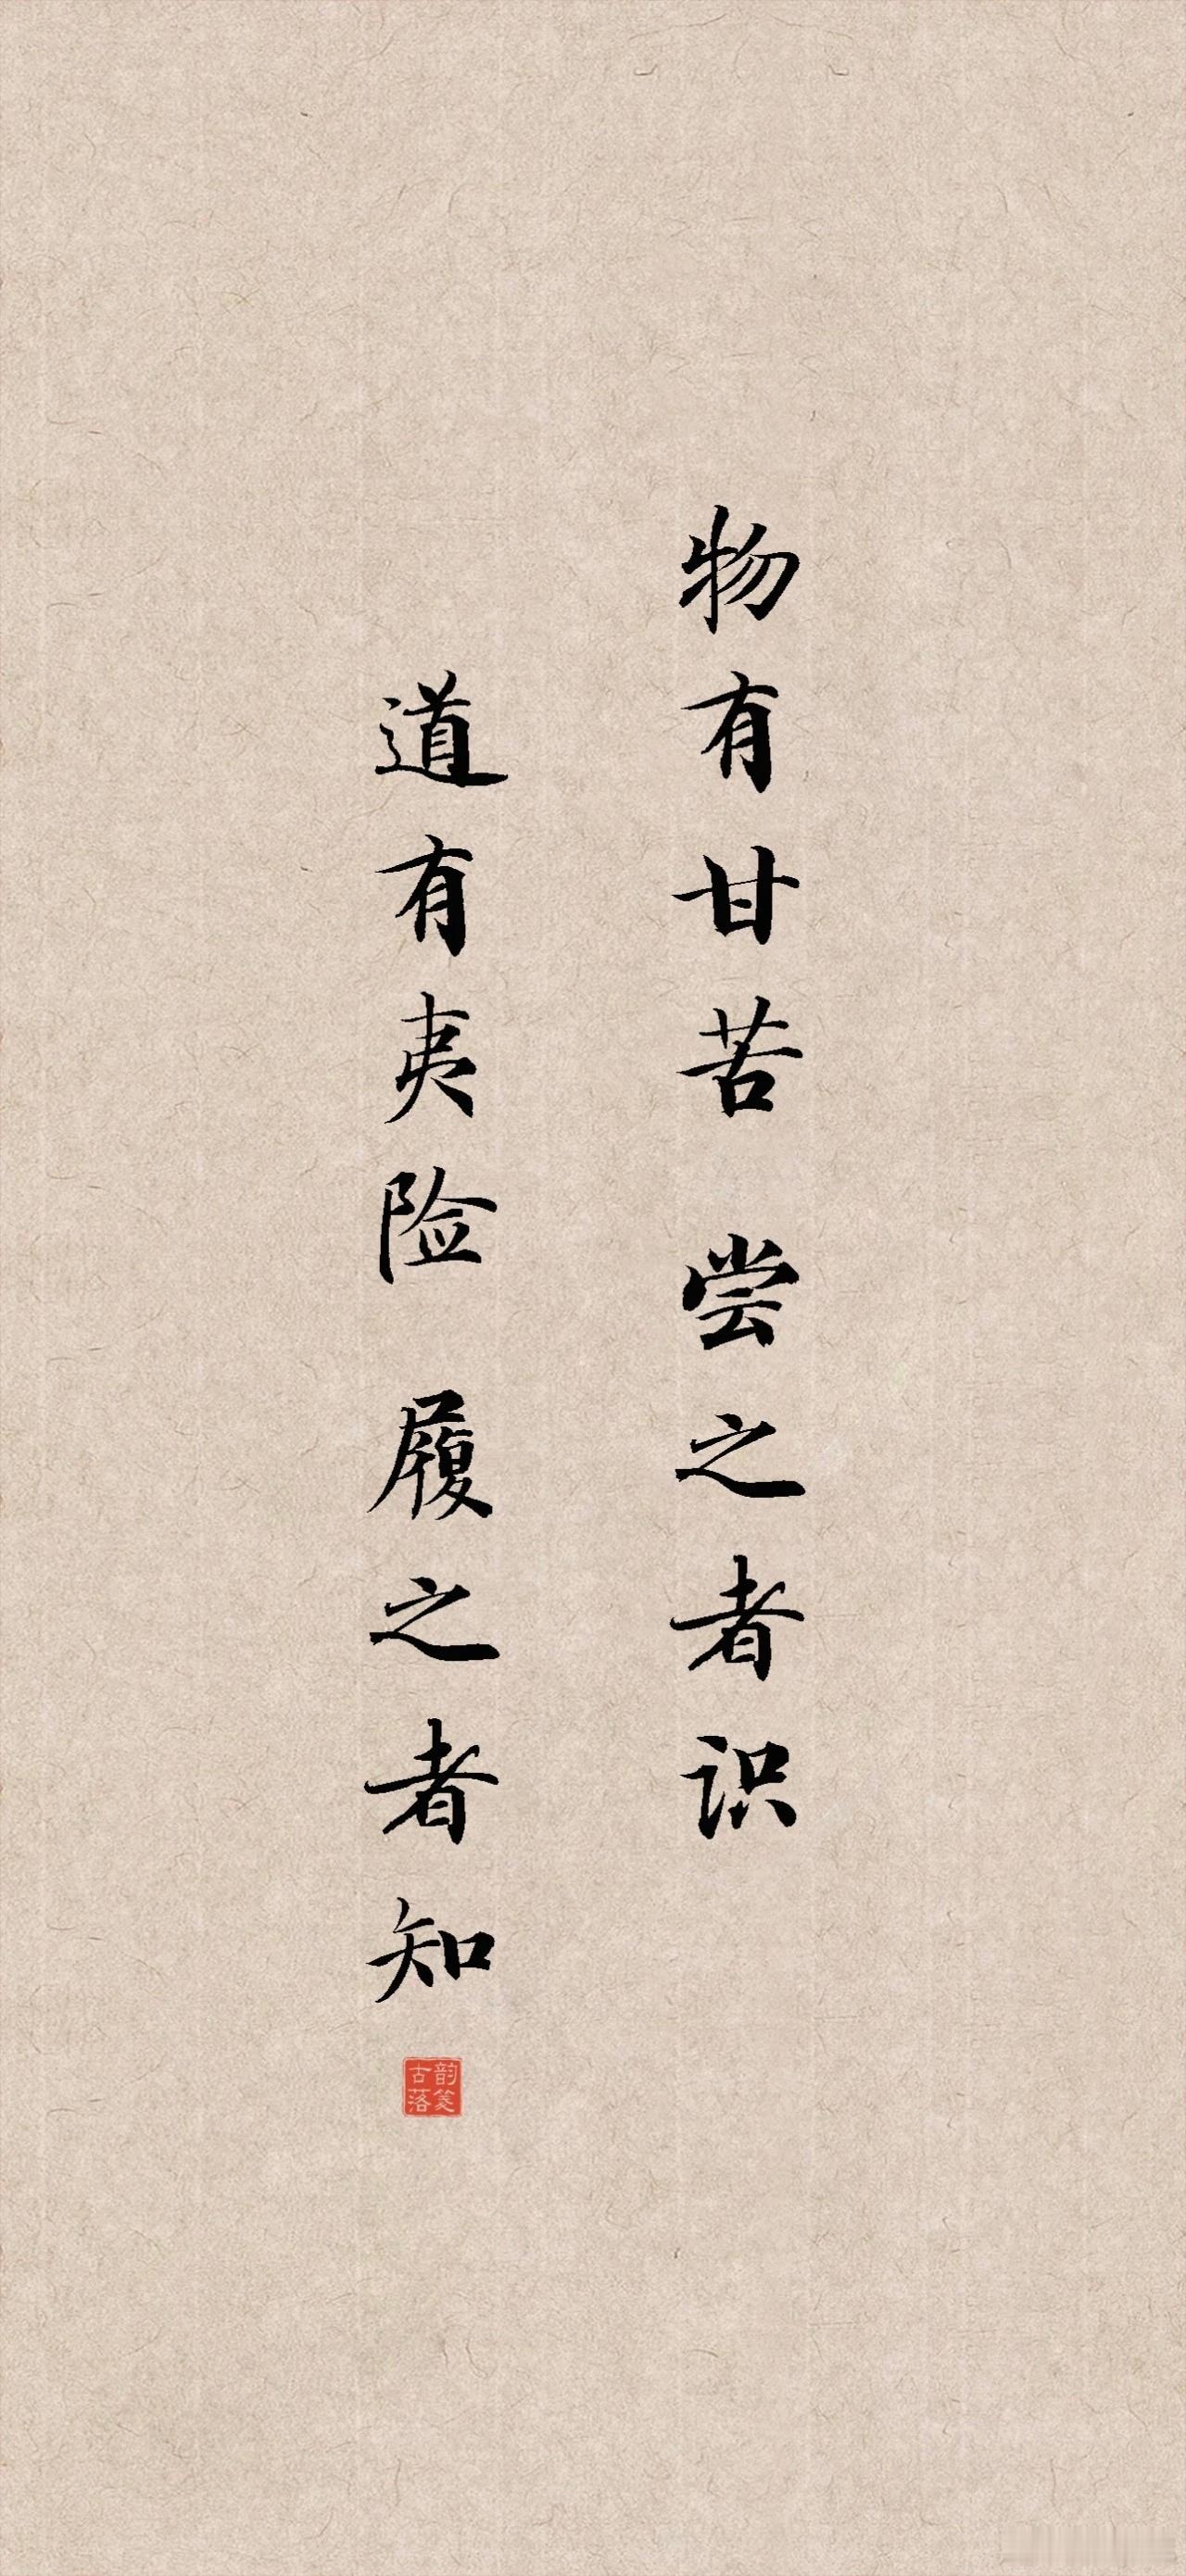 物有甘苦 尝之者识
道有夷险 履之者知
韵笺
古落